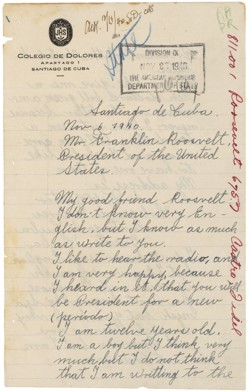 COLEGIO DE DOLORES
APARTADO 1
SANTIAGO DE CUBA
DIVISION OF
DEPARTMENT OF STATE
Santiago de Cuba.
Nov 6 1940.
Mr Franklin Roosvelt,
President of the United
States.
My good friend Roosvelt
I don't know very En-
glish, but I know as much
as write to you.
I like to hear the radio, and
I am very happy, because
I heard in it, that you will
be President for a new
(periodo)
I am twelve years old.
I am a boy but I think very
much but I do not think
that I am writting to the
811.001 Roosevelt